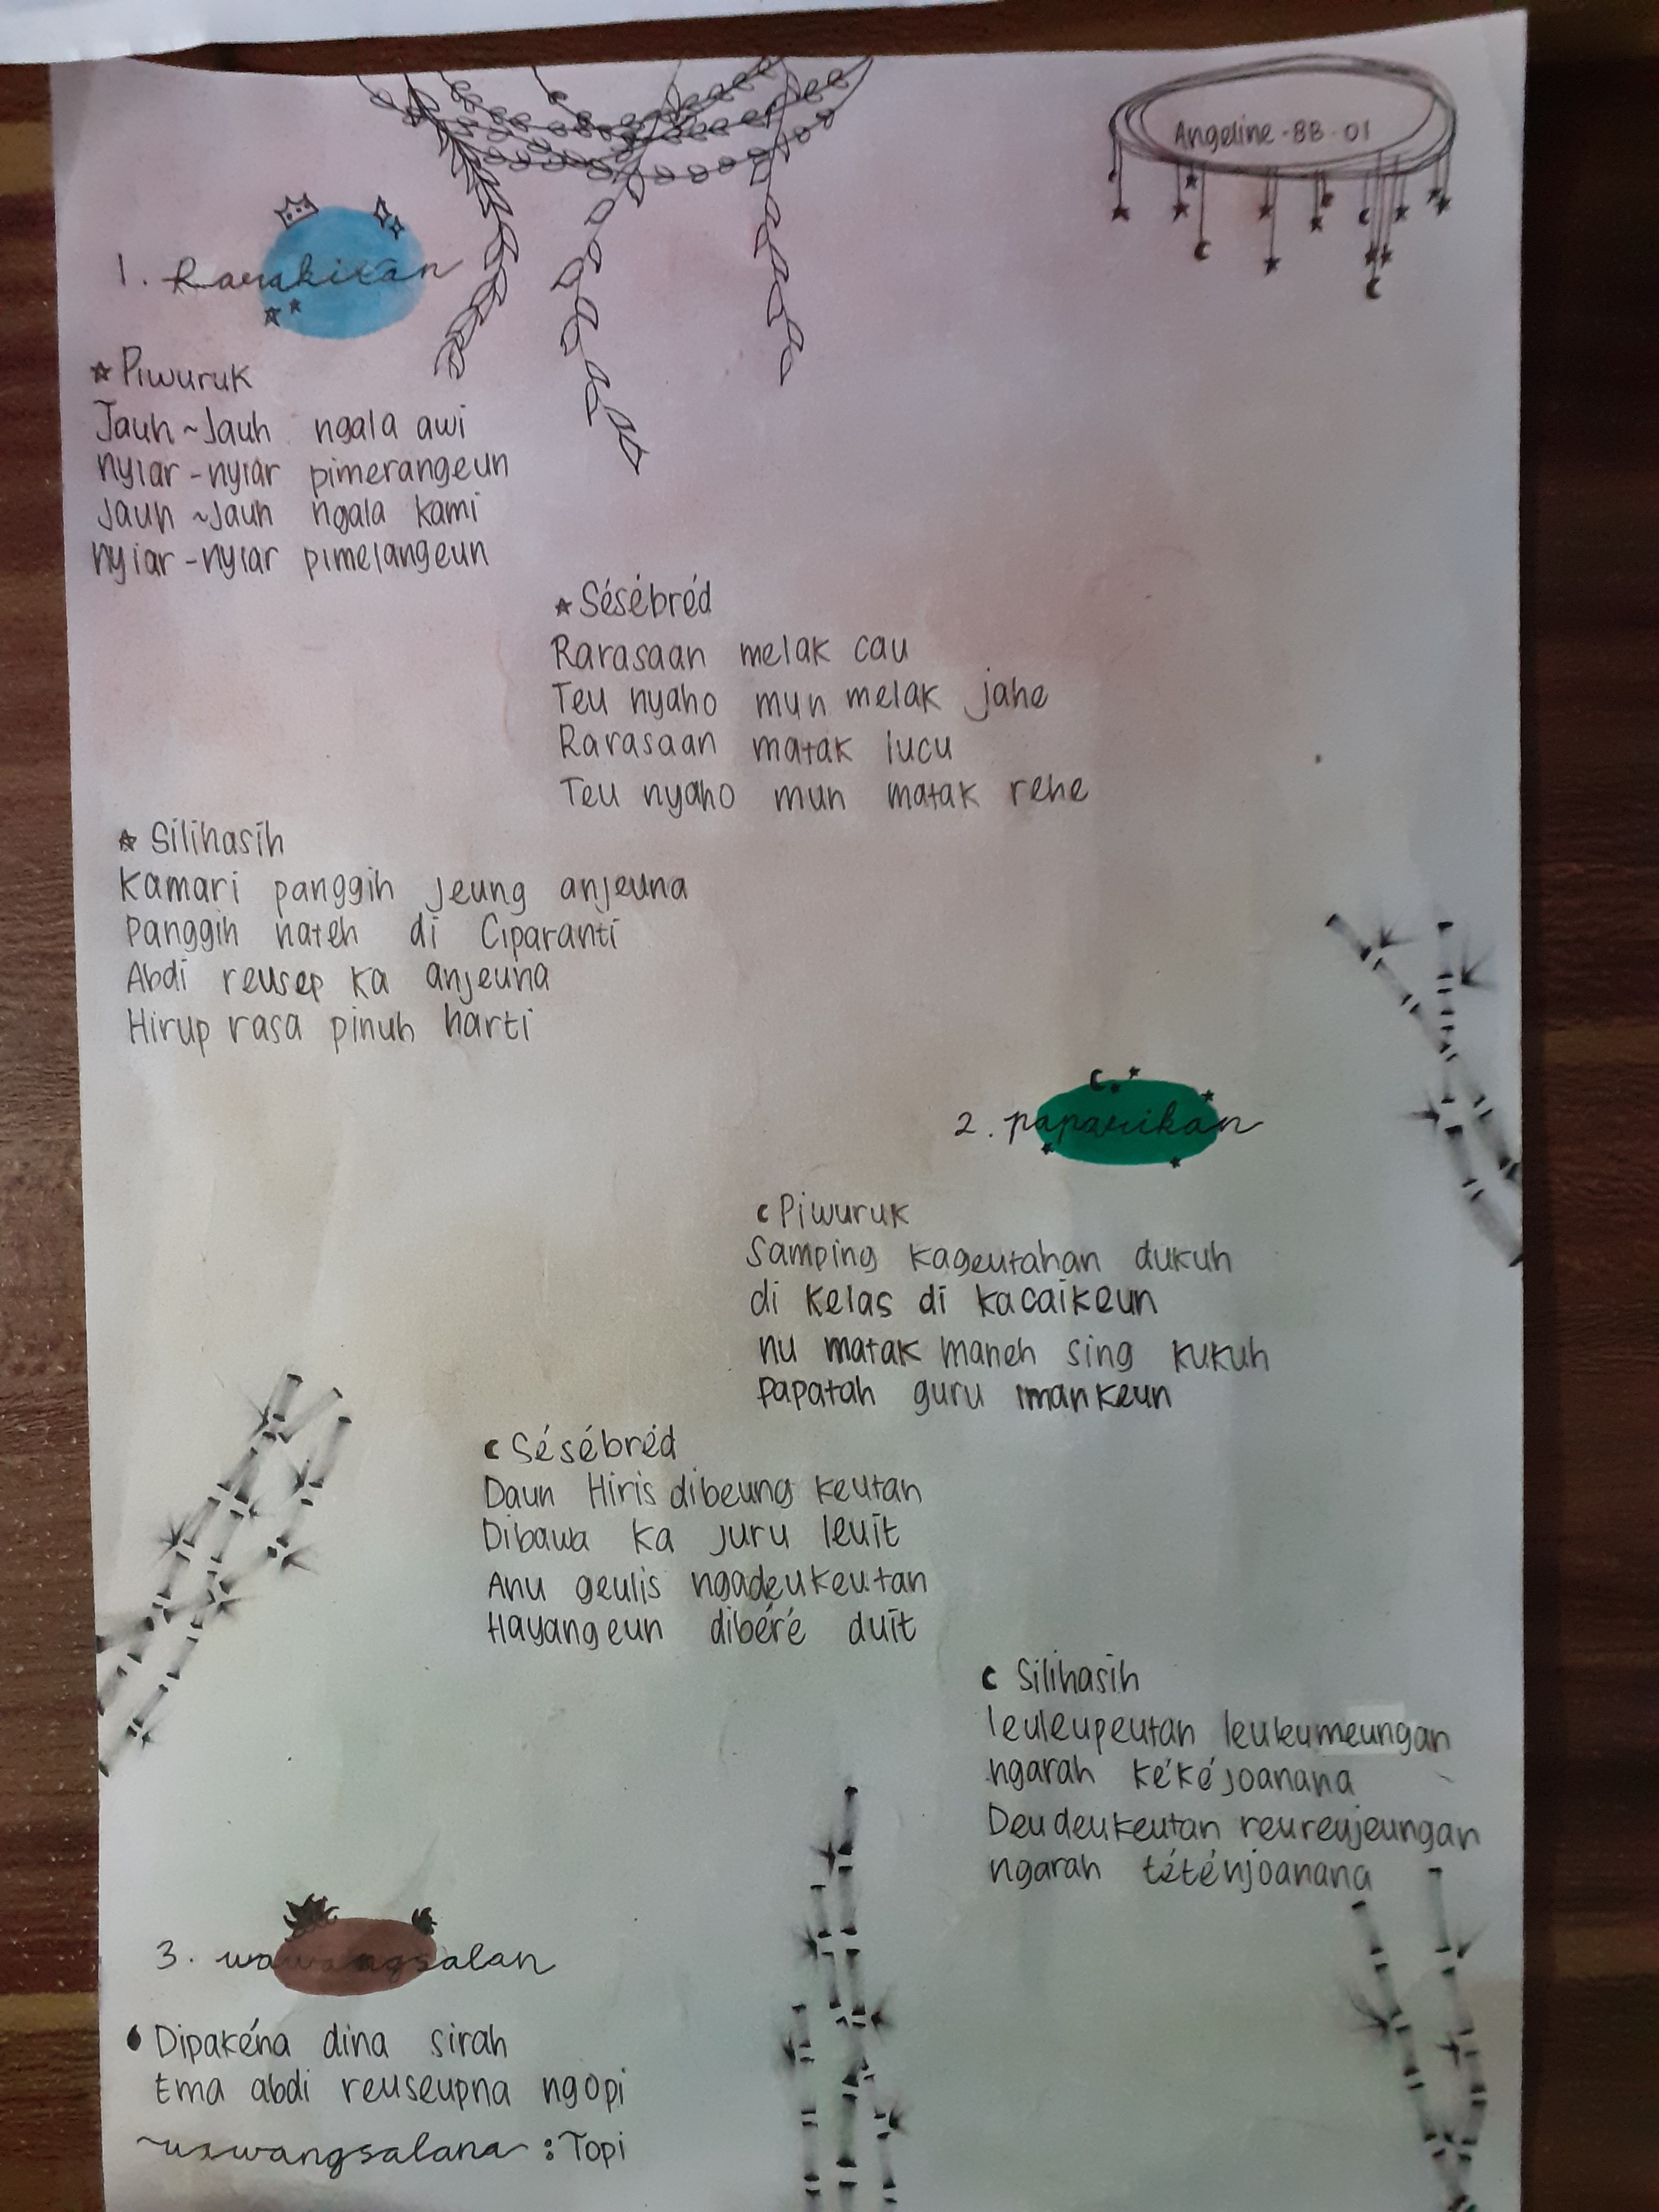 Angeline-8B-01
1. Rarakitan
Piwuruk
Jauh~Jauh ngala awi
nyiar-nyiar pimerangeun
Jauh~Jauh ngala kami
nyiar-nyiar pimelangeun
Sésébréd
Rarasaan melak cau
Teu nyaho mun melak jahe
Rarasaan matak lucu
Teu nyaho mun matak rehe
Silihasih
Kamari panggih jeung anjeuna
Panggih hateh di Ciparanti
Abdi reusep ka anjeuna
Hirup rasa pinuh harti
2. paparikan
Piwuruk
Samping kageutahan dukuh
di kelas di kacaikeun
nu matak maneh sing kukuh
papatah guru imankeun
Sésébréd
Daun Hiris dibeung keutan
Dibawa ka juru leuit
Anu geulis ngadeukeutan
Hayangeun dibéré duit
Silihasih
leuleupeutan leuleumeungan
ngarah kékéjoanana
Deudeukeutan reureujeungan
ngarah téténjoanana
3. wawangsalan
Dipakéna dina sirah
Ema abdi reuseupna ngopi
~wawangsalana~ : Topi